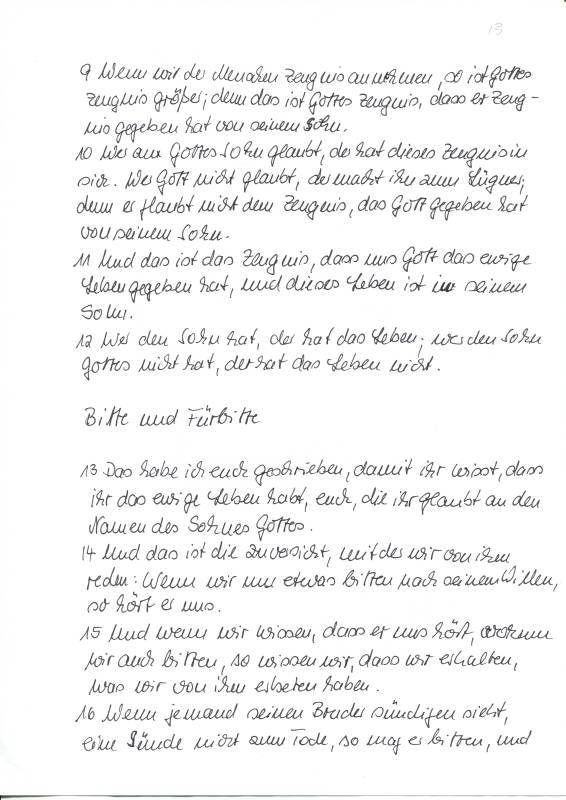 13
9 Wenn wir der Menschen Zeugnis annehmen, so ist Gottes
Zeugnis größer; denn das ist Gottes Zeugnis, dass er Zeug-
nis gegeben hat von seinem Sohn.
10 Wer an Gottes Sohn glaubt, der hat dieses Zeugnis in
sich. Wer Gott nicht glaubt, der macht ihn zum Lügner;
denn er glaubt nicht dem Zeugnis, das Gott gegeben hat
von seinem Sohn.
11 Und das ist das Zeugnis, dass uns Gott das ewige
Leben gegeben hat, und dieses Leben ist in seinem
Sohn.
12 Wer den Sohn hat, der hat das Leben; wer den Sohn
Gottes nicht hat, der hat das Leben nicht.
Bitte und Fürbitte
13 Das habe ich euch geschrieben, damit ihr wisst, dass
ihr das ewige Leben habt, euch, die ihr glaubt an den
Namen des Sohnes Gottes.
14 Und das ist die Zuversicht, mit der wir von ihm
reden: Wenn wir um etwas bitten nach seinem Willen,
so hört er uns.
15 Und wenn wir wissen, dass er uns hört, worum
wir auch bitten, so wissen wir, dass wir erhalten,
was wir von ihm erbeten haben.
16 Wenn jemand seinen Bruder sündigen sieht,
eine Sünde nicht zum Tode, so mag er bitten, und